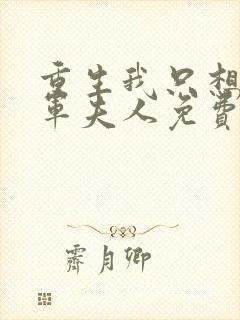 重生我只想
軍夫人免費
霽月卿